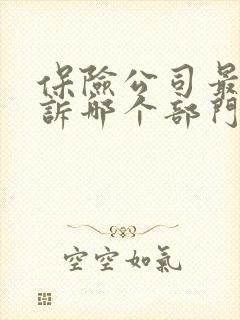 保險公司最
訴哪个部門
空空如氣